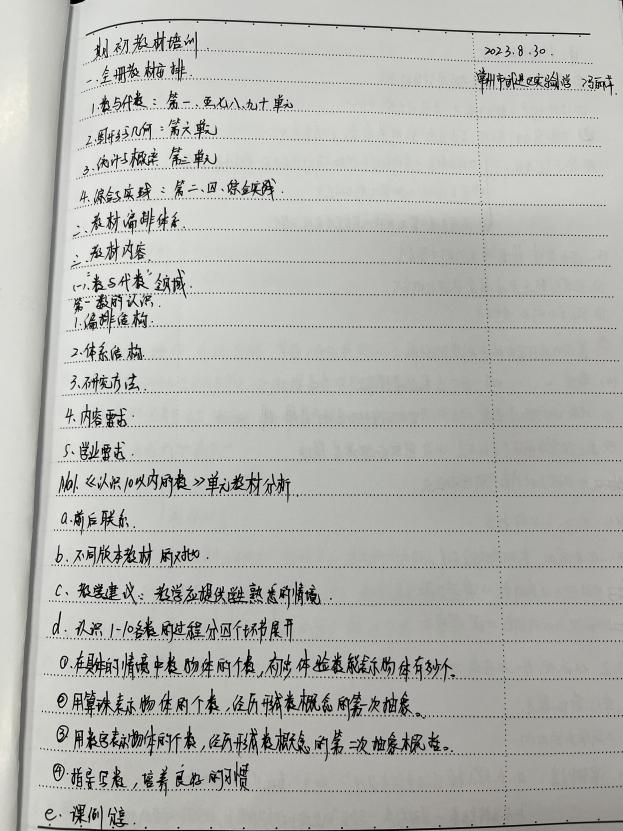 期初教材培训
2023.8.30.
一.全册教材安排
常州市武进区实验小学 冯丽萍
1.数与代数:第一、五、七、八、九、十单元
2.图形与几何:第六单元
3.统计与概率 第三单元
4.综合与实践:第二、四、综合实践.
二.教材编排体系.
三.教材内容.
(一)."数与代数"领域.
第一 数的认识.
1.编排结构.
2.体系结构.
3.研究方法.
4.内容要求.
5.学业要求.
No1.《认识10以内的数》单元教材分析.
a.前后联系.
b.不同版本教材的对比.
c.教学建议:教学应提供学生熟悉的情境.
d.认识1-10各数的过程分四个环节展开
①.在具体的情境中数物体的个数,初步体验数能表示物体有多少个。
②用算珠表示物体的个数,经历形成数概念的第一次抽象。
③用数字表示物体的个数,经历形成数概念的第二次抽象概括。
④指导写数,培养良好的习惯
e.课例分享.